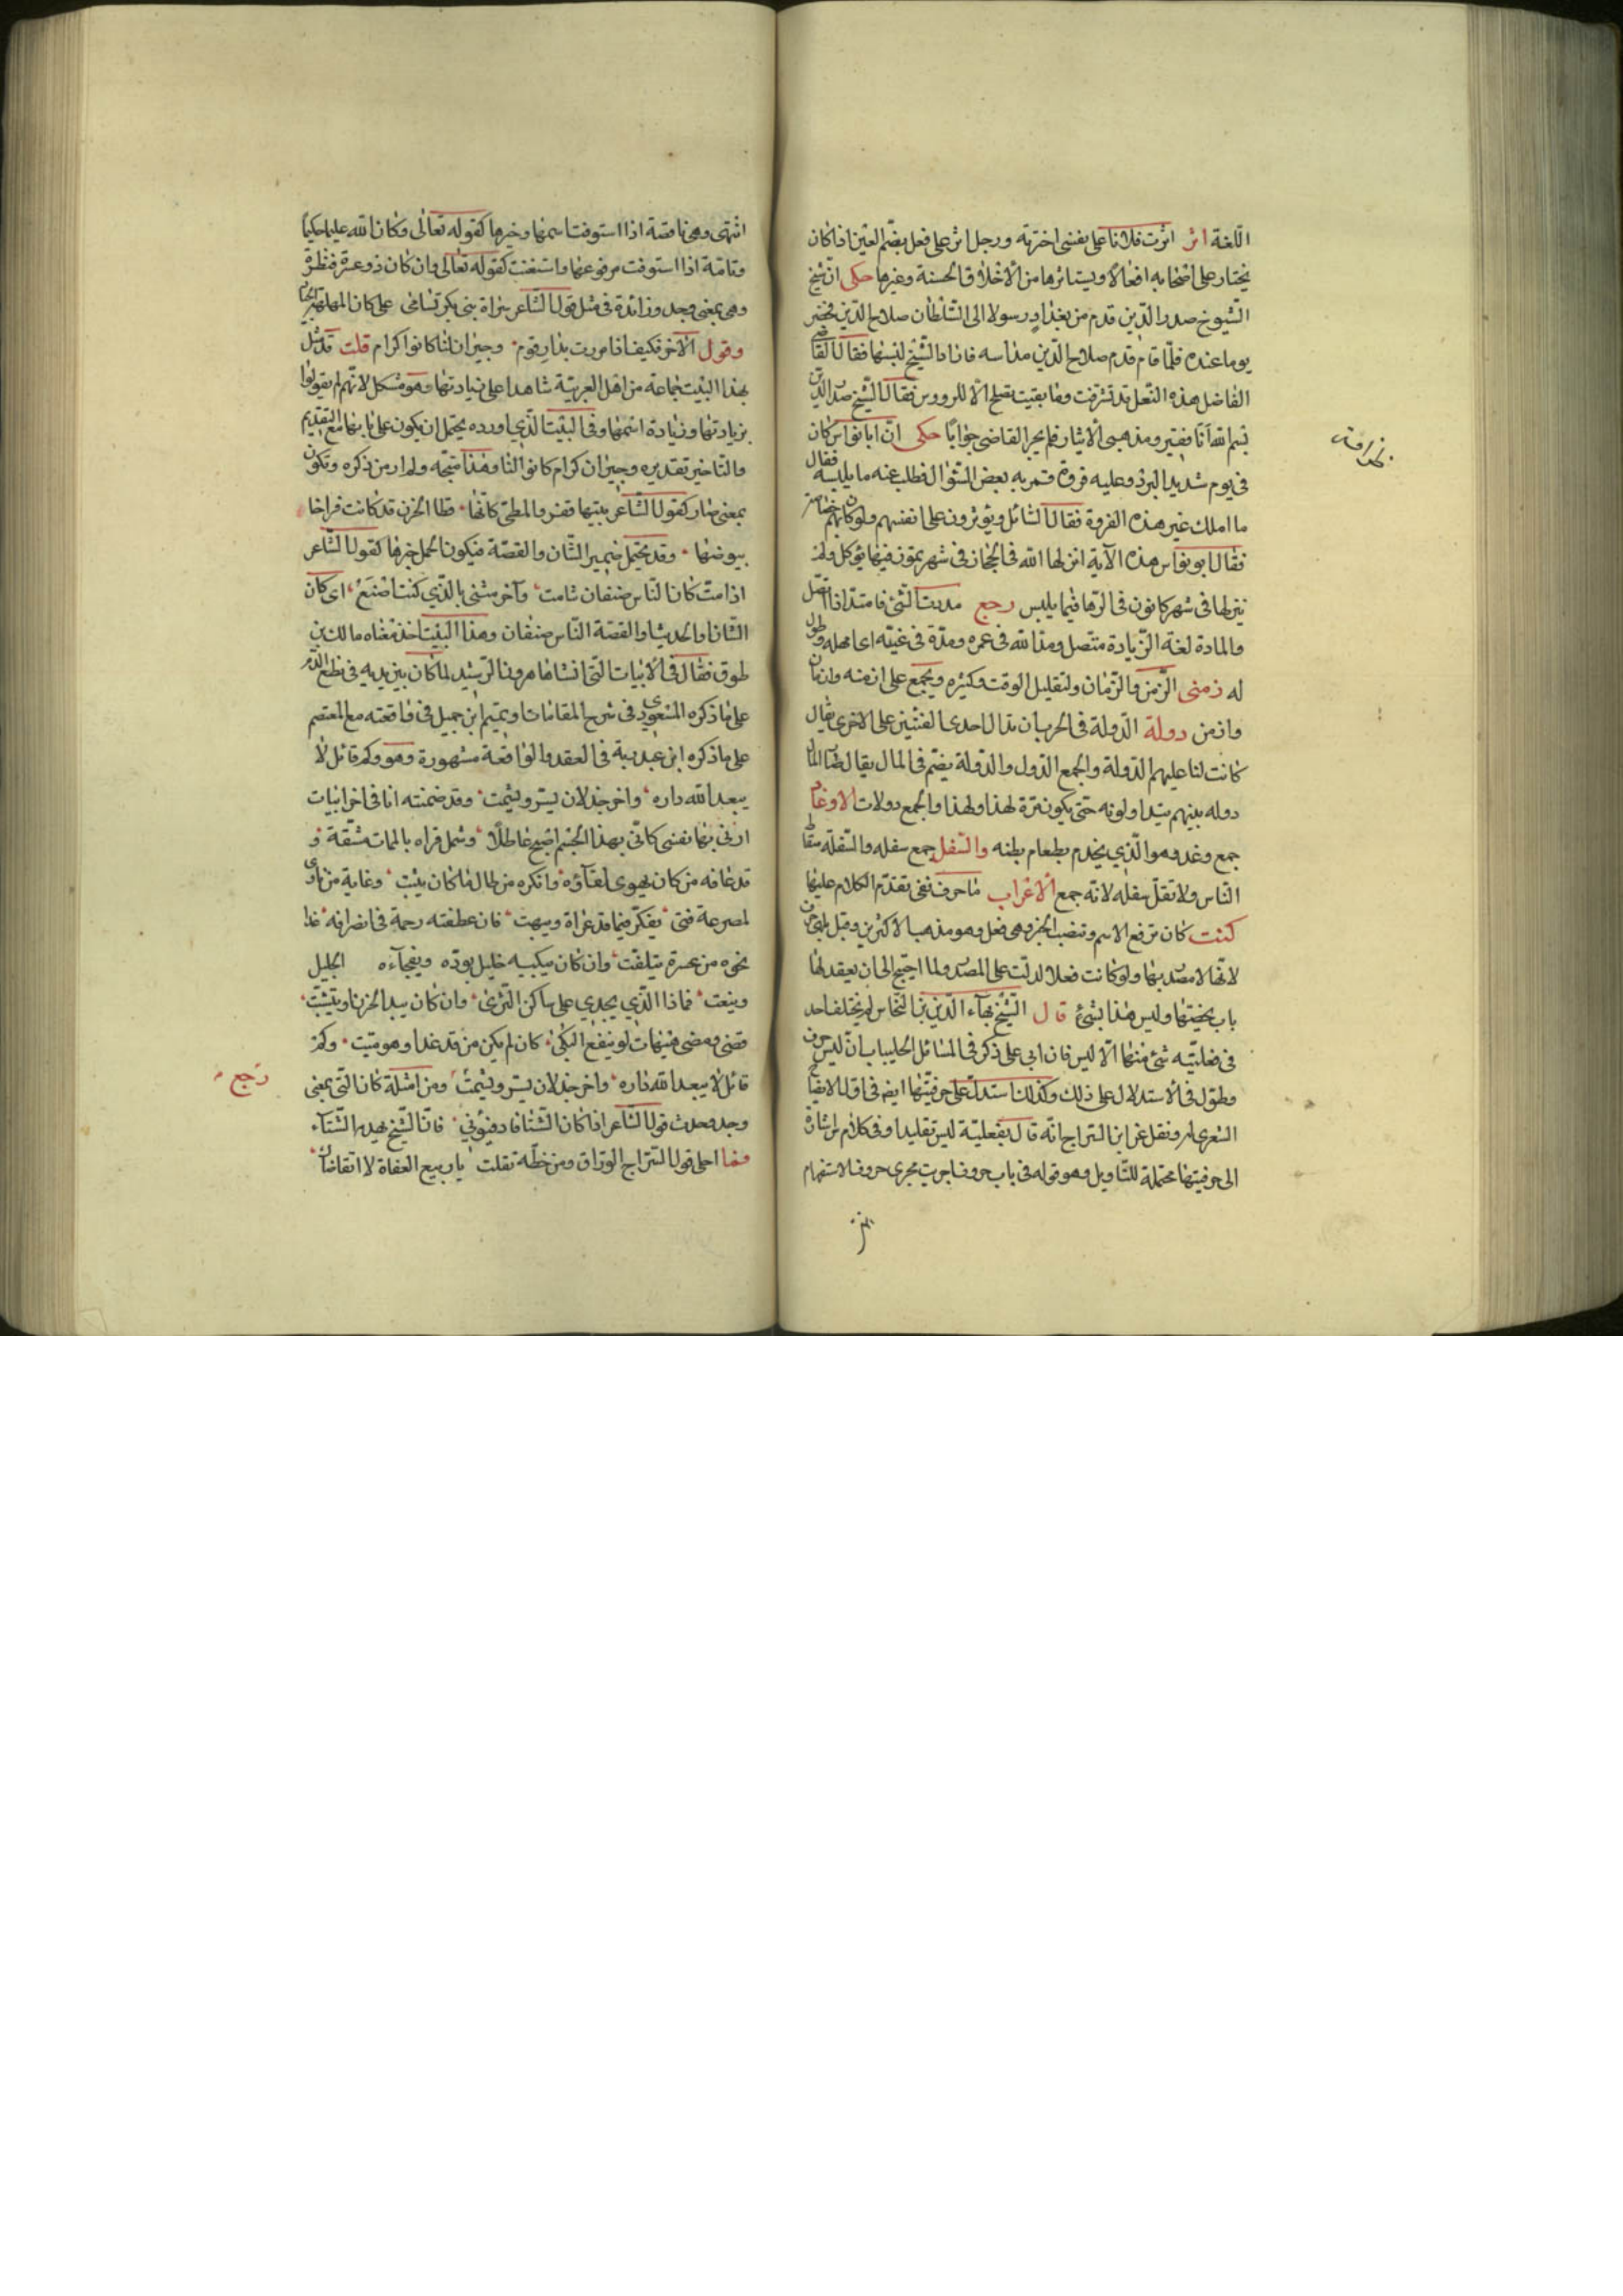 اللغة اثر اثرت فلانا على نفسى اخترته ورجل اثر على فعل بضم العين اذا كان
يختار على اصحابه افعالا ويستاثرها من الاخلاق الحسنة وغيرها حكى ان شيخ
الشيوخ صدر الدين قدم من بغداد رسولا الى السلطان صلاح الدين فحضر
يوما عنده فلما قام قدم صلاح الدين مداسه فاراد الشيخ لبسها فقال القاضى
الفاضل هذه النعل قد تشرفت وما بقيت تصلح الا للرووس فقال الشيخ صدر الدين
بسم الله انا فقير ومذهبى الايثار فلم يحر القاضى جوابا حكى ان ابا نواس كان
فى يوم شديد البرد وعليه فروة فمر به بعض السؤال فطلب عنه ما يلبسه فقال
ما املك غير هذه الفروة فقال السائل ويؤثرون على انفسهم ولو كان بهم خصاصة
فقال ابو نواس هذه الآية انزلها الله فى الحجاز فى شهر تموز فيما يؤكل ولم
ينزلها فى شهر كانون فى الرها فيما يلبس رجع مددت الشئ فامتد اذا اتصل
والمادة لغة الزيادة متصل ومد الله فى عمره ومدة فى غيته اى امهله وطول
له زمنى الزمن والزمان ولتقليل الوقت وكثيره ويجمع على ازمنه وازمان
وازمن دولة الدولة فى الحرب ان تدال احدى الفئتين على الاخرى يقال
كانت لنا عليهم الدولة والجمع الدول والدولة بضم فى المال يقال صار المال
دوله بينهم يتداولونه حتى يكون مرة لهذا ولهذا والجمع دولات الاوغاد
جمع وغد وهو الذى يخدم بطعام بطنه والسفل جمع سفله والسفلة سقاط
الناس ولا تقل سفله لانه جمع الاعراب ما حرف نفى تقدم الكلام عليها
كنت كان ترفع الاسم وتنصب الخبر وهى فعل وهو مذهب الاكثرين وقيل بل هى حرف
لانها لا مصدر بها ولو كانت فعلا لدلت على المصدر ولما احتيج الى ان يعقد لها
باب بخصتها وليس هذا بشئ قال الشيخ بهاء الدين بن النحاس لم يختلف احد
فى فعليته شئ منها الا ليس فان ابا على ذكر فى المسائل الحلبيات ان ليس حرف
وطول فى الاستدلال على ذلك وكذلك استدل على حرفيتها ايضا فى اول الايضاح
الشعرى له ونقل عن ابن السراج انه قال بفعليته ليس تقليدا وفى كلام س اشارة
الى حرفيتها محتملة للتاويل وهو قوله فى باب حروف اجريت مجرى حروف الاستفهام
انتهى وهى ناقصة اذا استوفت اسمها وخبرها كقوله تعالى وكان الله عليما حكيما
وتامة اذا استوفت مرفوعها واستغنت كقوله تعالى وان كان ذو عسرة فنظرة
وهى بمعنى وجد وزائدة فى مثل قول الشاعر سراة بنى بكر تسامى على كان المطهمة الجياد
وقول الآخر فكيف اذا مررت بدار قوم وجيران لنا كانوا كرام قلت قد مثل
بهذا البيت جماعة من اهل العربية شاهدا على زيادتها وهو مشكل لانهم لم يقولوا
بزيادتها وزيادة اسمها وفى البيت الذى اورده يحتمل ان يكون على بابها مع التقديم
والتاخير تقديره وجيران كرام كانوا لنا وهذا متجه ولم ار من ذكره وتكون
بمعنى صار كقول الشاعر بتيهاء قفر والمطى كانها قطا الحزن قد كانت فراخا
بيوضها وقد يحتمل ضمير الشان والقصة فيكون الجمل خبرها كقول الشاعر
اذا مت كان الناس صنفان شامت وآخر مثنى بالذى كنت اصنع اى كان
الشان او الحديث او القصة الناس صنفان وهذا البيت اخذ معناه مالك بن
طوق فقال فى الابيات التى انشاها هرون الرشيد لما كان بين يديه فى نطع الدم
على ما ذكره المسعودى فى شرح المقامات او تميم ابن جميل فى واقعته مع المعتصم
على ما ذكره ابن عبد ربه فى العقد والواقعة مشهورة وهو وكم قائل لا
يبعد الله داره واخر جذلان يسر ويشمت وقد ضمنته انا فى اخر ابيات
ارثى بها نفسى كانى بهذا الجسم اصبح عاطلا وشمل قراه بالممات مشتة و
قد عافه من كان يهوى لقاؤه وانكره من طال ما كان يثبت وغاية من
لمصرعة فتى يفكر فيما قد عراه ويبهت فان عطفته رحمة فى انصرافه غدا
نحوه من عسرة يتلفت وان كان يبكيه خليل بوده ويفجاءه الجليل
وينعت فماذا الذى يجدى على ساكن الثرى وان كان يبد الحزن او يتثبت
قضى ومضى هيهات لو ينفع البكى كان لم يكن من قد غدا وهو ميت وكم
قائل لا يبعد الله داره واخر جذلان يسر ويشمت ومن امثلة كان التى بمعنى
وجد وحدث قول الشاعر اذا كان الشتا فادفئونى فان الشيخ يهدمه الشتاء
وما احلى قول السراج الوراق ومن خطه نقلت يا ربيع العفاة لا اتقاضاك
رجع